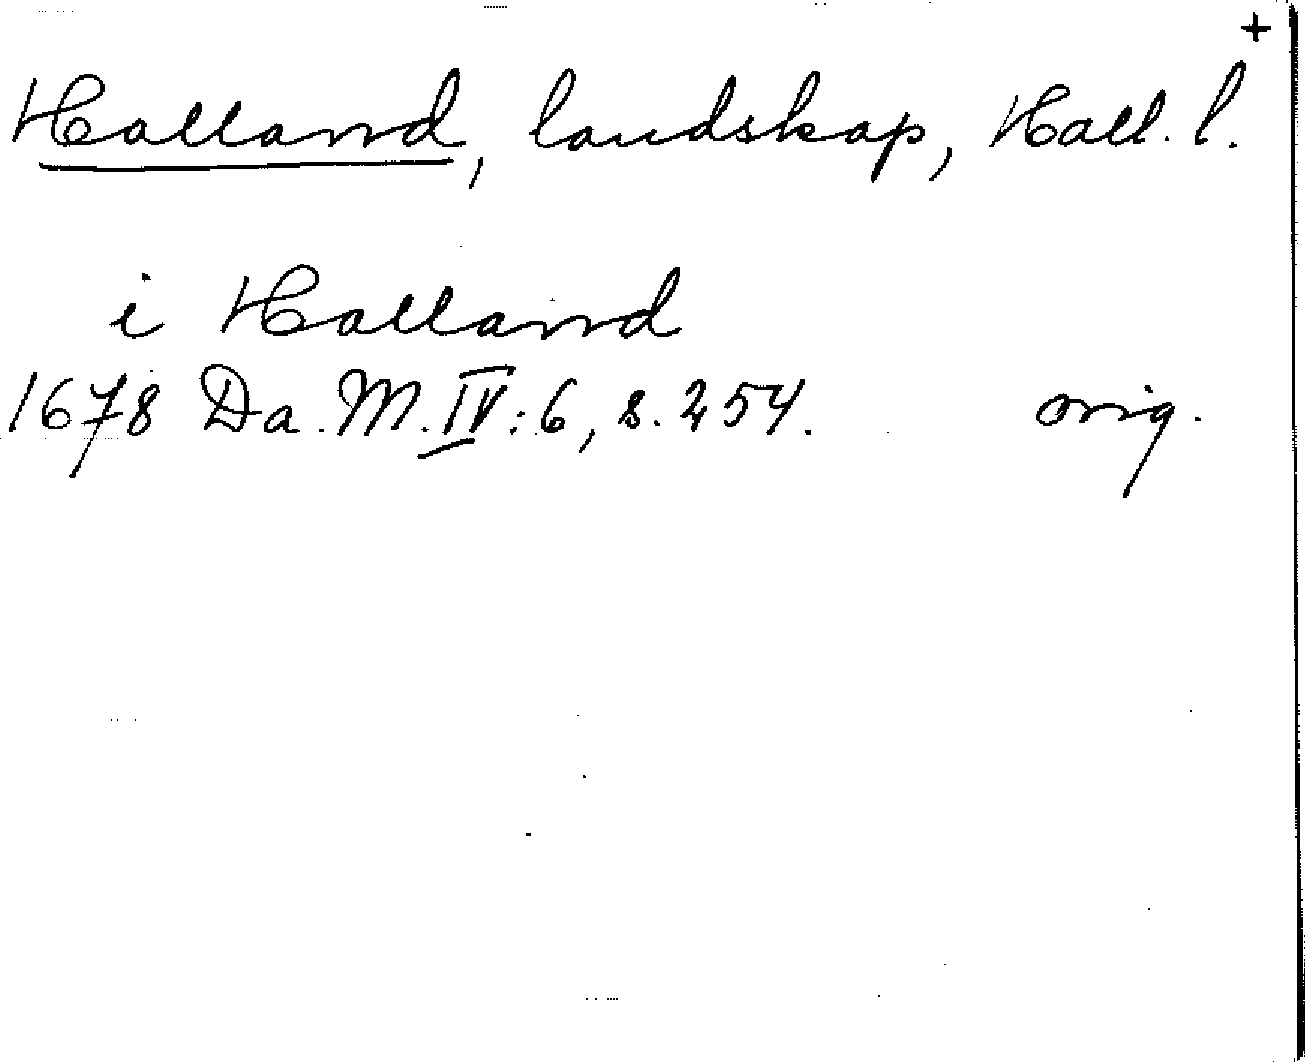 +
Halland, landskap, Hall. l.
i Halland
1678 Da. M. IV: 6, s. 254. orig.